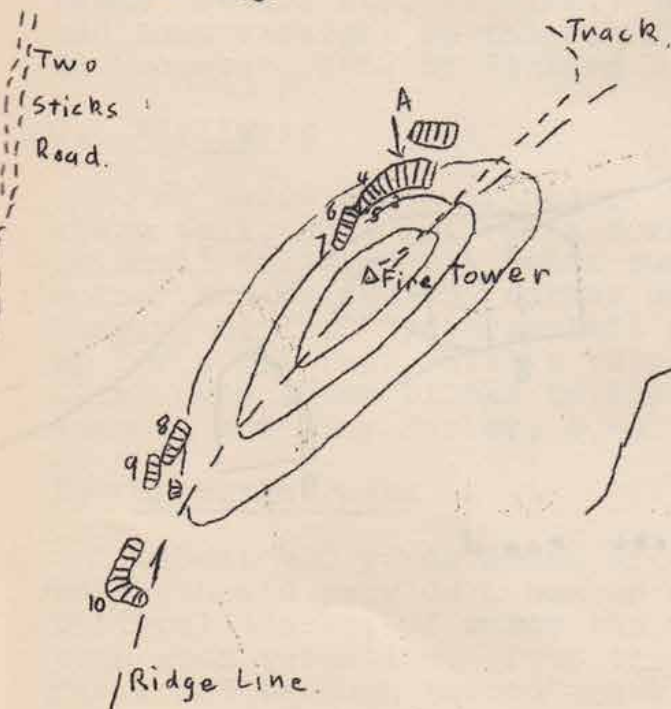 Two
Sticks
Road.
Track.
A
4
6
5
7
Fire Tower
8
9
10
Ridge Line.